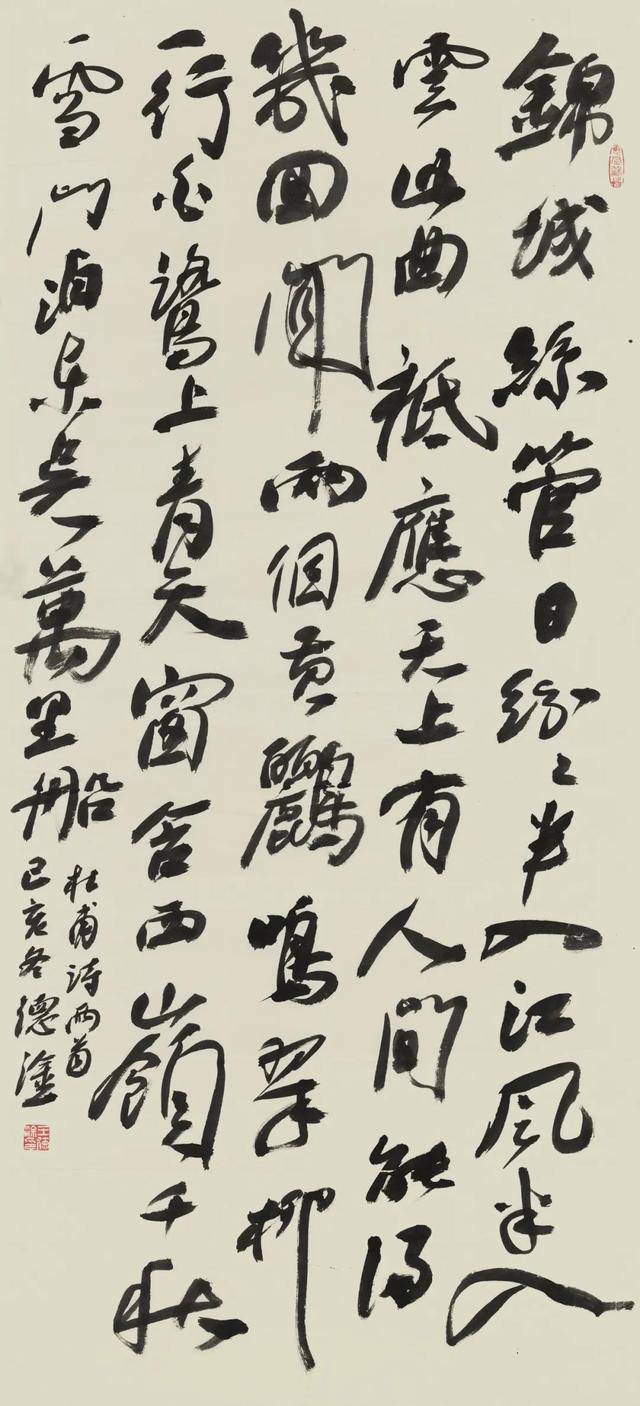 錦城絲管日紛〻半入江風半入
雲此曲祇應天上有人間能得
幾回聞兩個黃鸝鳴翠柳
一行白鷺上青天窗含西嶺千秋
雪門泊東吳萬里船
杜甫詩兩首
己亥冬德淦